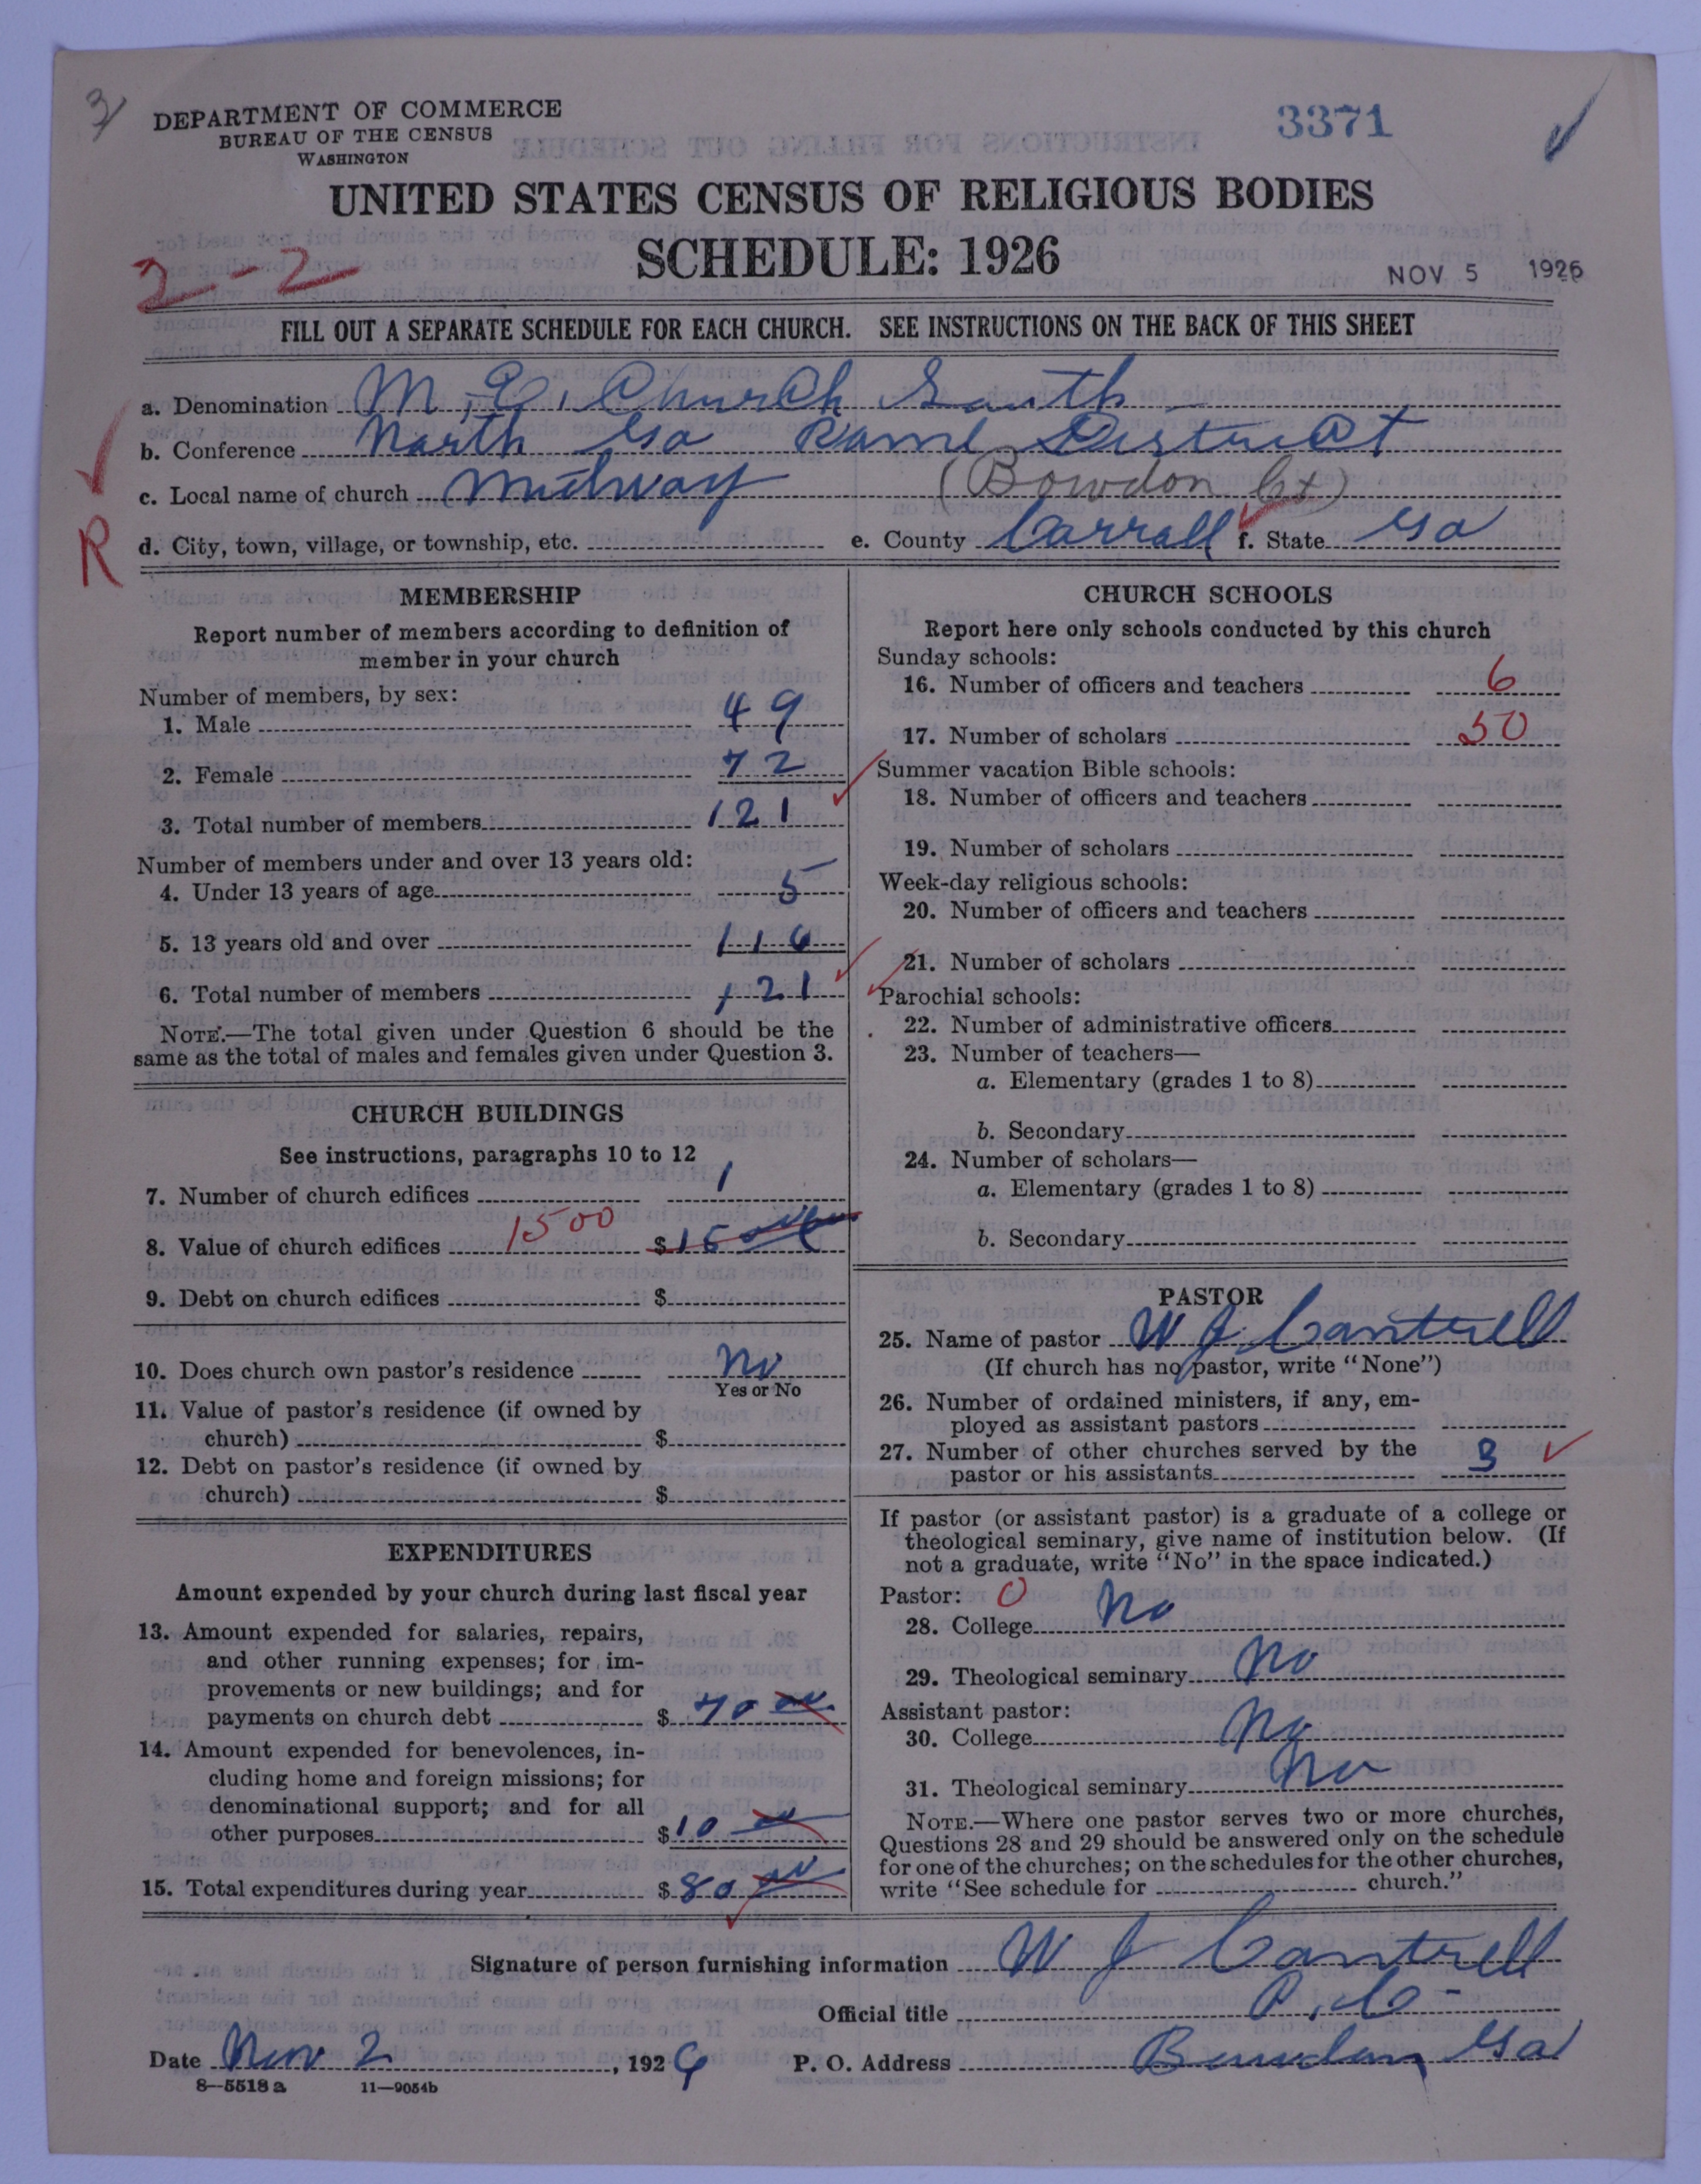 3
DEPARTMENT OF COMMERCE
BUREAU OF THE CENSUS
WASHINGTON
3371
UNITED STATES CENSUS OF RELIGIOUS BODIES
SCHEDULE: 1926
2-2
NOV 5 1926
FILL OUT A SEPARATE SCHEDULE FOR EACH CHURCH. SEE INSTRUCTIONS ON THE BACK OF THIS SHEET
a. Denomination M. E. Church South
b. Conference North Ga Rome District
c. Local name of church Midway (Bowdon Ct)
R
d. City, town, village, or township, etc. e. County Carroll f. State Ga
MEMBERSHIP
Report number of members according to definition of
member in your church
Number of members, by sex:
1. Male 49
2. Female 72
3. Total number of members 121
Number of members under and over 13 years old:
4. Under 13 years of age 5
5. 13 years old and over 116
6. Total number of members 121
NOTE.—The total given under Question 6 should be the
same as the total of males and females given under Question 3.
CHURCH BUILDINGS
See instructions, paragraphs 10 to 12
7. Number of church edifices 1
8. Value of church edifices 1500 $
9. Debt on church edifices $
10. Does church own pastor's residence No
Yes or No
11. Value of pastor's residence (if owned by
church) $
12. Debt on pastor's residence (if owned by
church) $
EXPENDITURES
Amount expended by your church during last fiscal year
13. Amount expended for salaries, repairs,
and other running expenses; for im-
provements or new buildings; and for
payments on church debt $ 70
14. Amount expended for benevolences, in-
cluding home and foreign missions; for
denominational support; and for all
other purposes $ 10
15. Total expenditures during year $ 80
CHURCH SCHOOLS
Report here only schools conducted by this church
Sunday schools:
16. Number of officers and teachers 6
17. Number of scholars 50
Summer vacation Bible schools:
18. Number of officers and teachers
19. Number of scholars
Week-day religious schools:
20. Number of officers and teachers
21. Number of scholars
Parochial schools:
22. Number of administrative officers
23. Number of teachers—
a. Elementary (grades 1 to 8)
b. Secondary
24. Number of scholars—
a. Elementary (grades 1 to 8)
b. Secondary
PASTOR
25. Name of pastor W J Cantrell
(If church has no pastor, write "None")
26. Number of ordained ministers, if any, em-
ployed as assistant pastors
27. Number of other churches served by the
pastor or his assistants 3
If pastor (or assistant pastor) is a graduate of a college or
theological seminary, give name of institution below. (If
not a graduate, write "No" in the space indicated.)
Pastor: 0
28. College No
29. Theological seminary No
Assistant pastor:
30. College No
31. Theological seminary No
NOTE.—Where one pastor serves two or more churches,
Questions 28 and 29 should be answered only on the schedule
for one of the churches; on the schedules for the other churches,
write "See schedule for church."
Signature of person furnishing information W J Cantrell
Official title P. C.
Date Nov 2, 1926 P. O. Address Bowdon Ga
8—5518 a 11—9054b